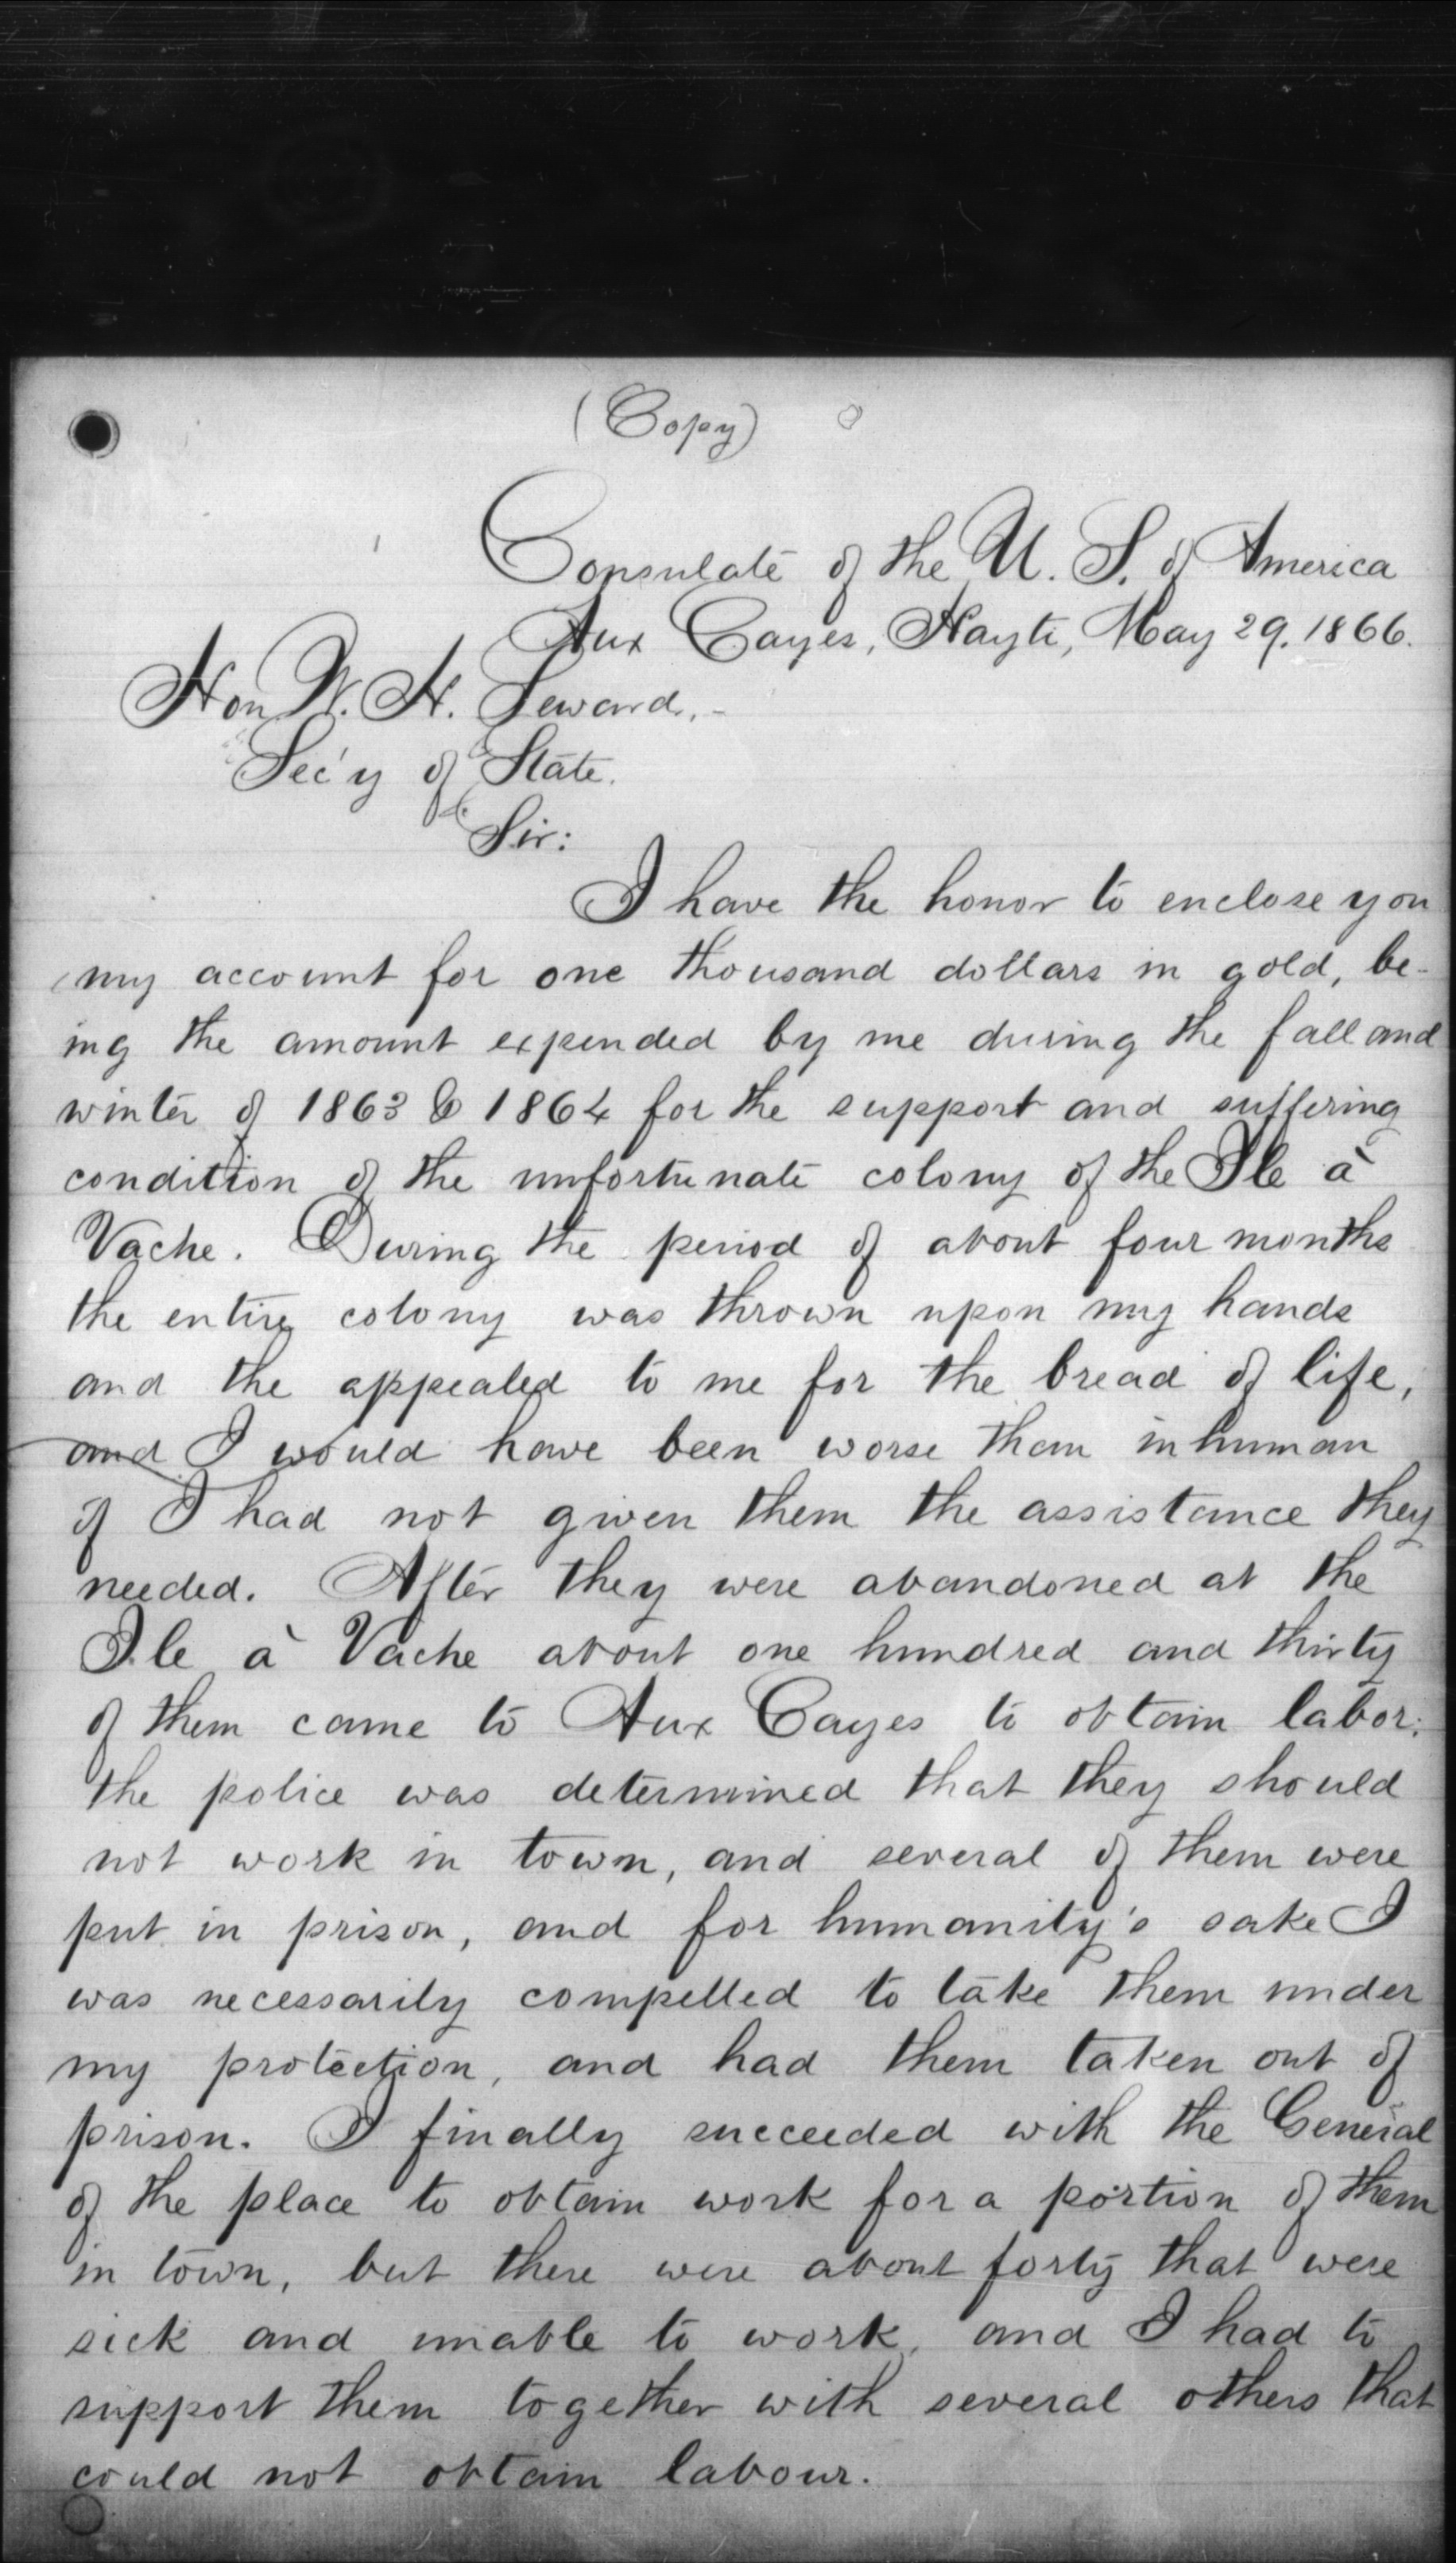 (Copy)
Consulate of the U. S. of America
Aux Cayes, Hayti, May 29. 1866.
Hon W. H. Seward,
Sec'y of State.
Sir:
I have the honor to enclose you
my account for one thousand dollars in gold, be-
ing the amount expended by me during the fall and
winter of 1863 & 1864 for the support and suffering
condition of the unfortunate colony of the Ile à
Vache. During the period of about four months
the entire colony was thrown upon my hands
and the appealed to me for the bread of life,
and I would have been worse than inhuman
if I had not given them the assistance they
needed. After they were abandoned at the
Ile à Vache about one hundred and thirty
of them came to Aux Cayes to obtain labor:
the police was determined that they should
not work in town, and several of them were
put in prison, and for humanity's sake I
was necessarily compelled to take them under
my protection, and had them taken out of
prison. I finally succeeded with the General
of the place to obtain work for a portion of them
in town, but there were about forty that were
sick and unable to work, and I had to
support them together with several others that
could not obtain labour.